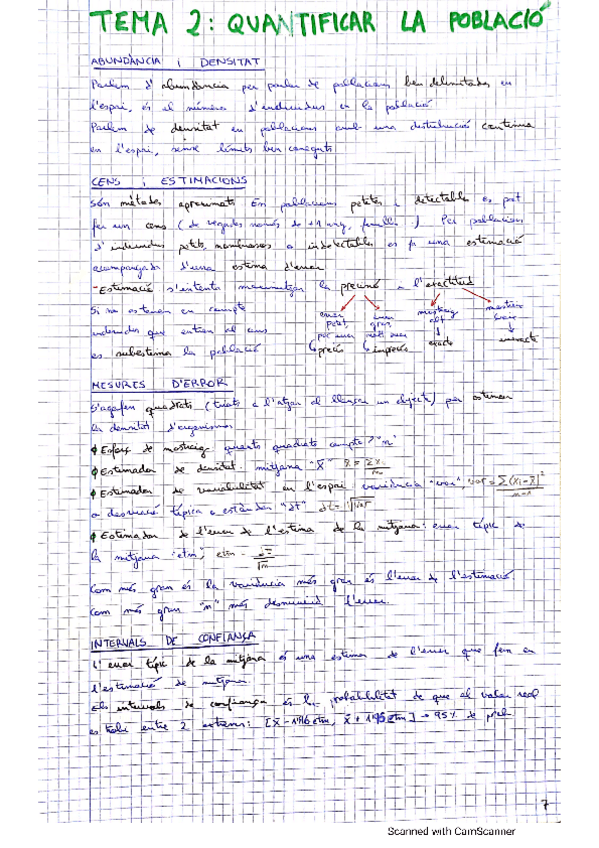 TEMA 2: QUANTIFICAR LA POBLACIÓ
ABUNDÀNCIA i DENSITAT
Parlem d'abundància per parlar de poblacions ben delimitades en
l'espai, és el número d'individus en la població
Parlem de densitat en poblacions amb una distribució contínua
en l'espai, sense límits ben coneguts
CENS i ESTIMACIONS
Són mètodes aproximats En poblacions petites i detectables es pot
fer un cens (de vegades només de 1 any, ) Per poblacions
d'individus petits, nombrosos o indetectables es fa una estimació
acompanyada d'una estima d'error
- Estimació s'intenta maximitzar la precisió i l'exactitud
Si no es tenen en compte
individus que entren al cens
es subestima la població
error petit, por
↳ precís
error gran,
↳ imprecís
mostreig alt
exacte
mostreig
inexacte
MESURES D'ERROR
S'agafen quadrats (tirats a l'atzar al llançar un objecte) per estimar
la densitat d'organismes
Esforç de mostreig quants quadrats compto? "n"
Estimador de densitat. mitjana "x̄" x̄ = Σxᵢ/n
Estimador de variabilitat en l'espai variància "var", var = Σ(xᵢ-x̄)²/n-1
o desviació típica o estàndar "dt" dt = √var
Estimador de l'error de l'estima de la mitjana: error típic de
la mitjana "etm", etm = /√n
Com més gran és la variància més gran és l'error de l'estimació
Com més gran "n" més disminueix l'error.
INTERVALS DE CONFIANÇA
L'error típic de la mitjana és una estima de l'error que fem en
l'estimació de mitjana
Els intervals de confiança és la probabilitat de que el valor real
es trobi entre 2 extrems: [x̄ - 1'96 etm, x̄ + 1'96 etm] → 95% de prob
7
Scanned with CamScanner